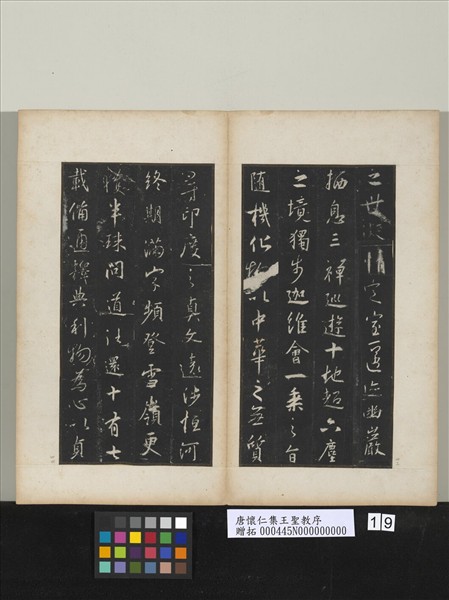 之世凝情定室匿迹幽巖
栖息三禪巡遊十地超六塵
之境獨步迦維會一乘之旨
隨機化物以中華之無質
尋印度之真文遠涉恒河
終期滿字頻登雪嶺更
獲半珠問道往還十有七
載備通釋典利物為心以貞
唐懷仁集王聖教序
贈拓 000445N000000000
19